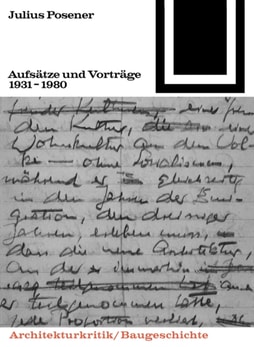 Julius Posener
Aufsätze und Vorträge
1931-1980
einer
den Kultur, die eine
Wohnkultur aus dem Vol-
ke — ohne Sozialismus,
während er gleichzeitig
in den Jahren der Emi-
gration, den dreissiger
Jahren, erleben muss,
dass die neue Architektur,
an der er immerhin
teilgenommen
hatte,
jede Proportion verliert,
Architekturkritik/Baugeschichte